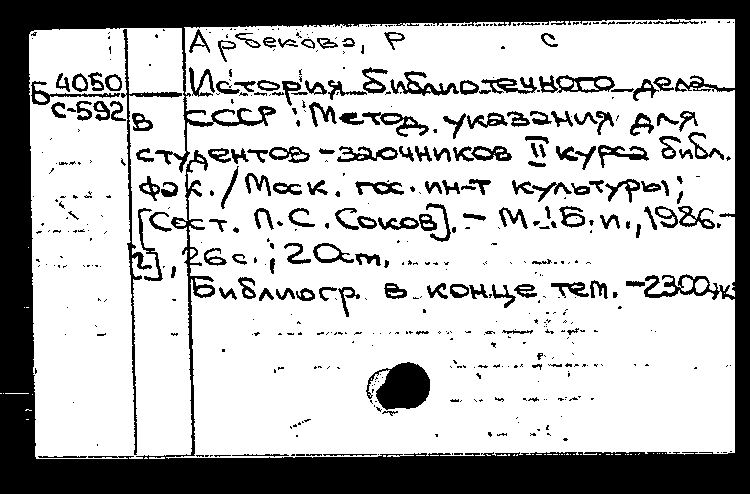 Арбекова, Р С
Б 4050 История библиотечного дела
С-592 в СССР : Метод. указания для
студентов-заочников II курса библ.
фак. / Моск. гос. ин-т культуры;
[Сост. П.С. Соков]. - М. : Б.и., 1986. -
[2], 26 с. ; 20 cm.
Библиогр. в конце тем. - 2300 экз